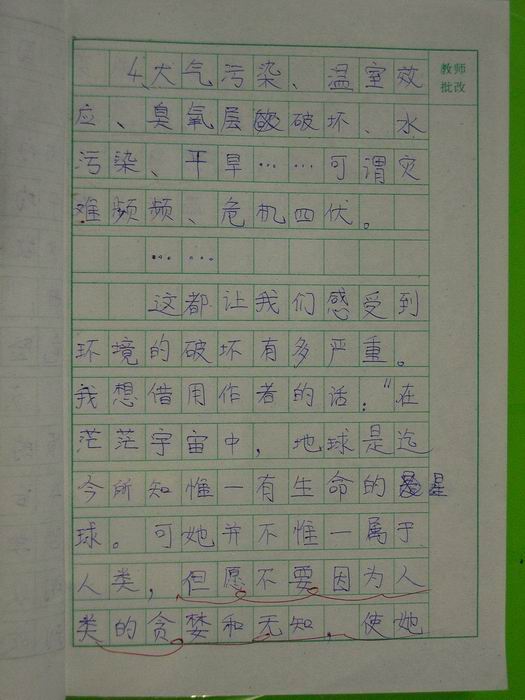 教师
批改
4、大气污染、温室效
应、臭氧层被破坏、水
污染、干旱……可谓灾
难频频、危机四伏。
……
这都让我们感受到
环境的破坏有多严重。
我想借用作者的话:“在
茫茫宇宙中,地球是迄
今所知惟一有生命的星
球。可她并不惟一属于
人类,但愿不要因为人
类的贪婪和无知,使她